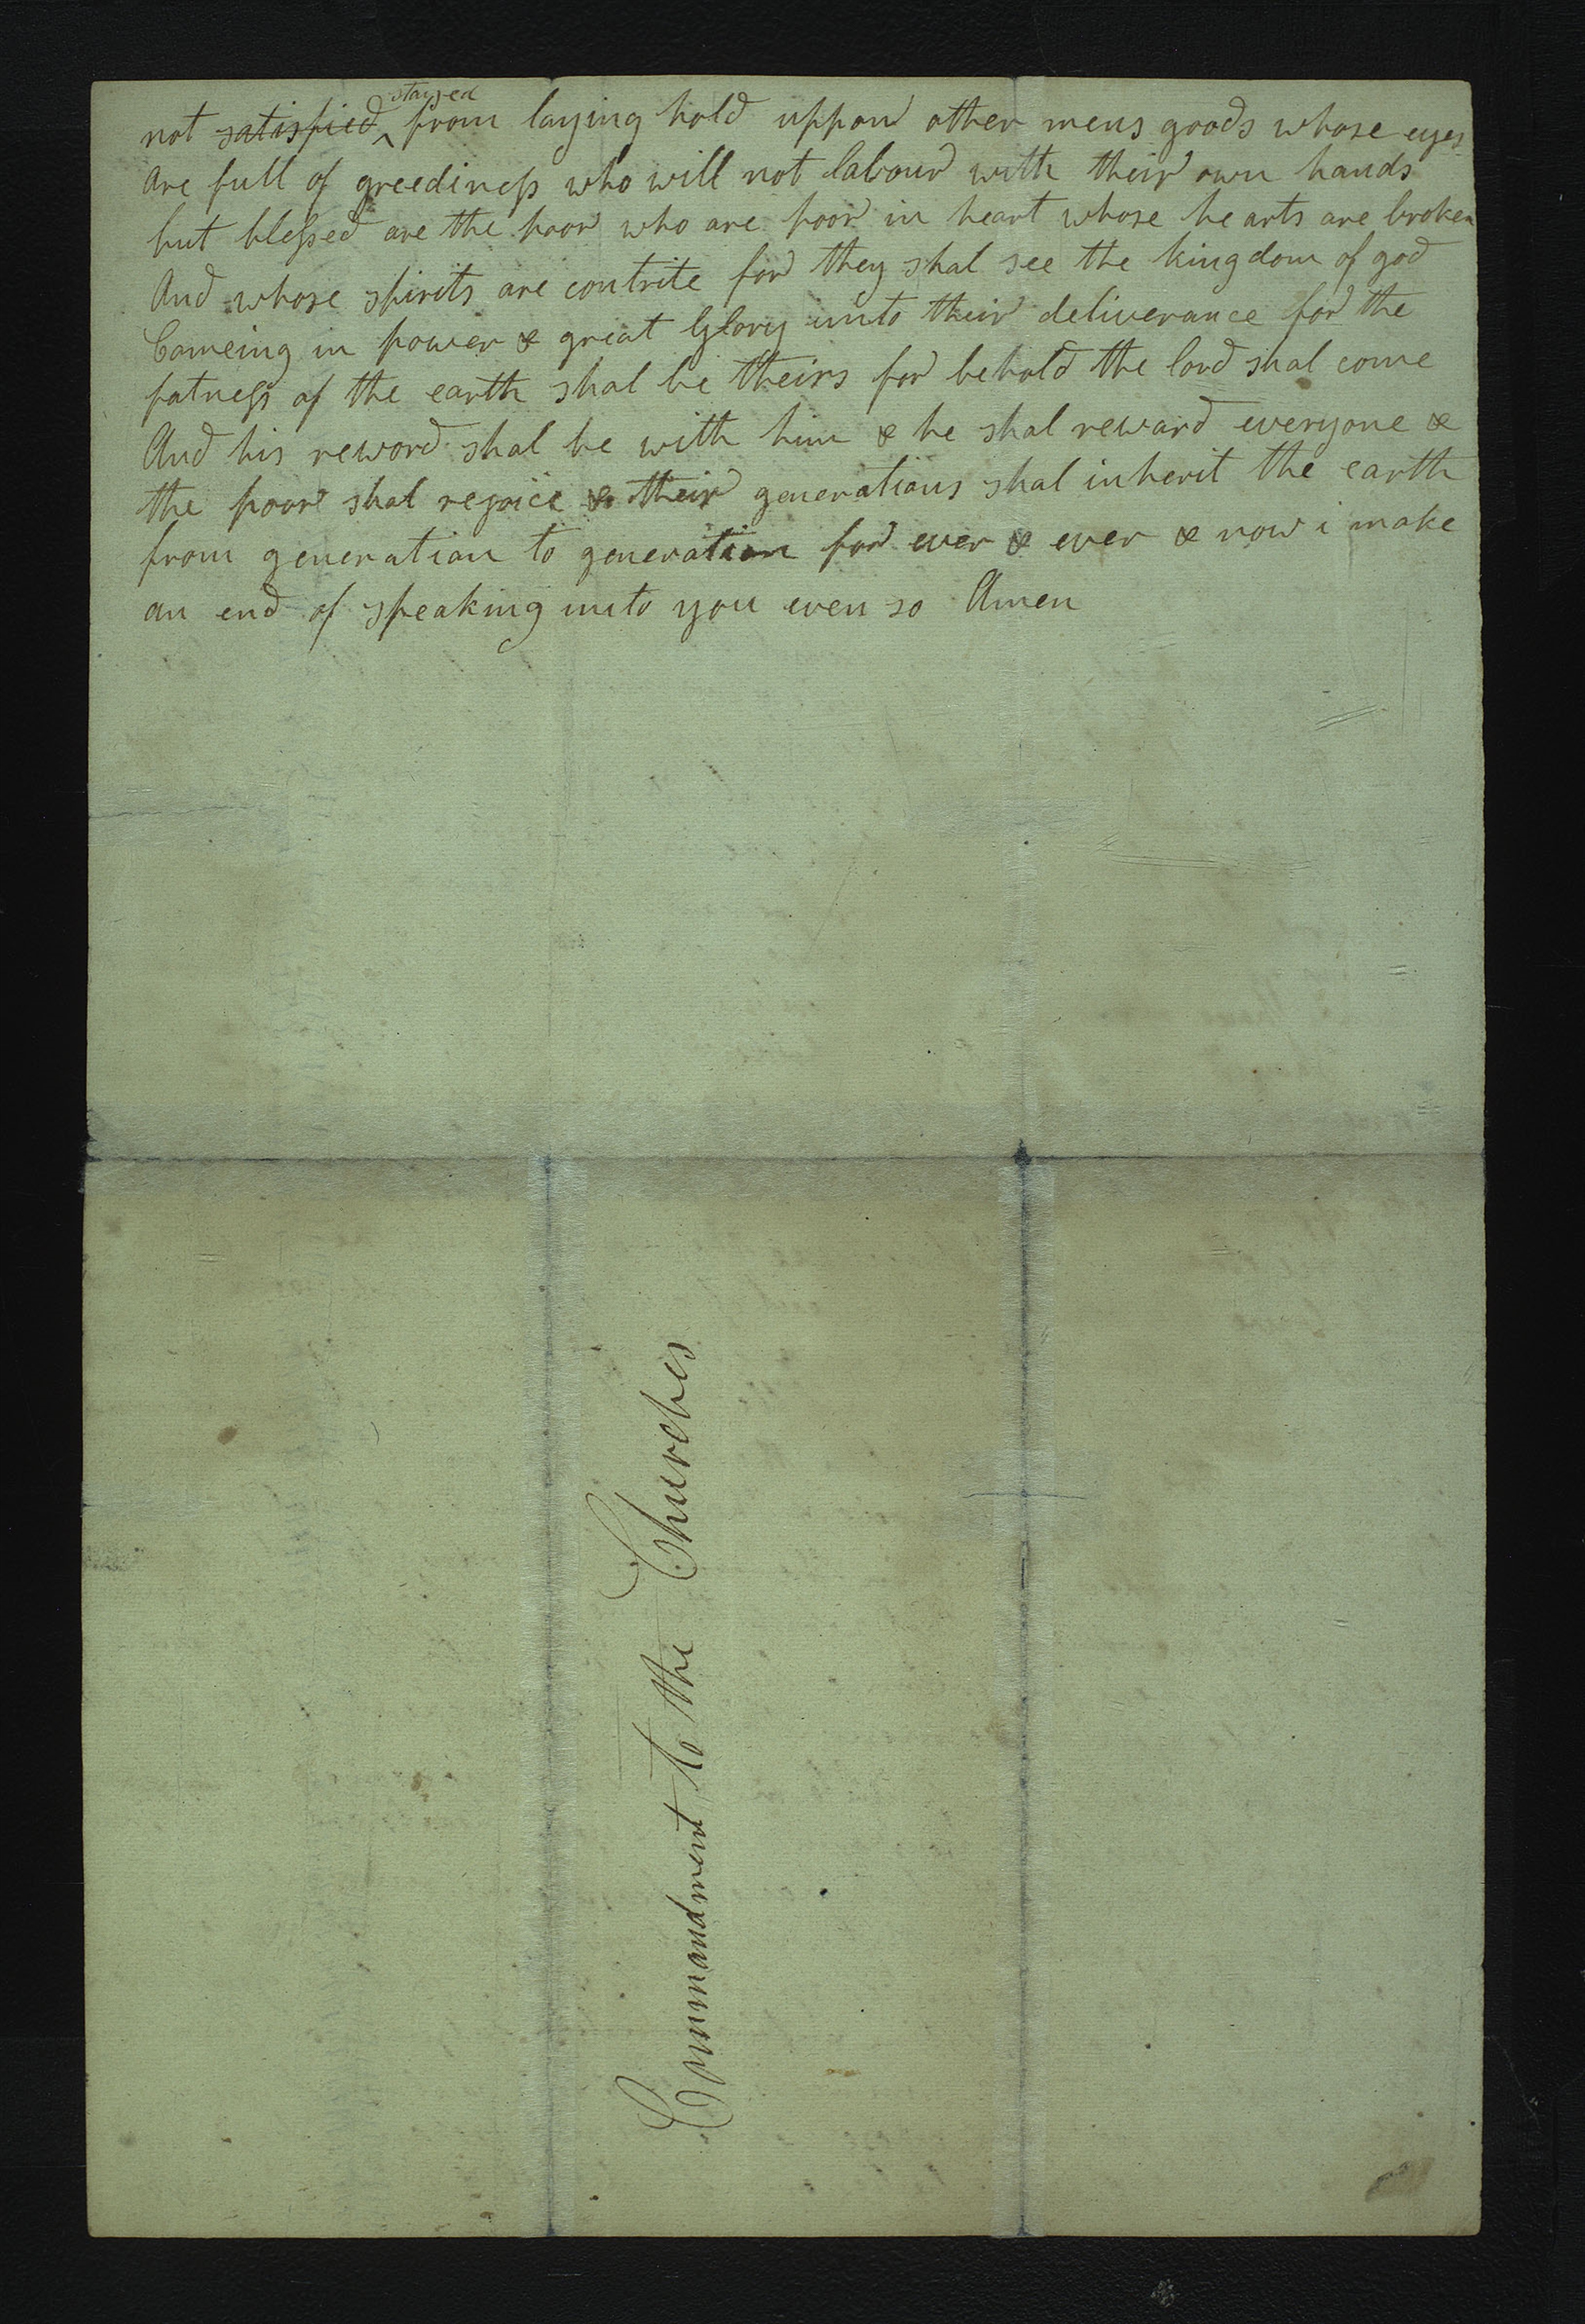 not satisfied stayed from laying hold uppon other mens goods whose eyes
Are full of greediness who will not labour with their own hands
but blessed are the poor who are poor in heart whose hearts are broken
And whose spirits are contrite for they shal see the kingdom of god
Comeing in power & great Glory unto their deliverance for the
fatness of the earth shal be theirs for behold the lord shal come
And his reword shal be with him & he shal reward everyone &
the poor shal rejoice & their generations shal inherit the earth
from generation to generation for ever & ever & now i make
an end of speaking unto you even so Amen
Commandment to the Churches